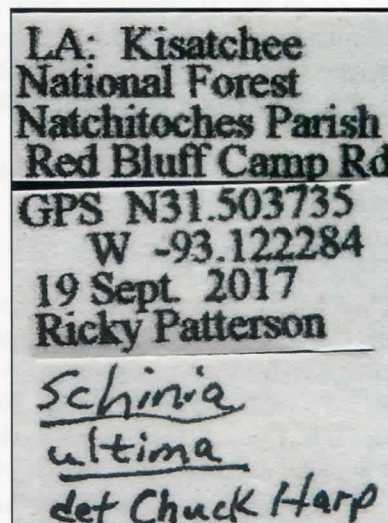 LA: Kisatchee
National Forest
Natchitoches Parish
Red Bluff Camp Rd
GPS N31.503735
W -93.122284
19 Sept. 2017
Ricky Patterson
Schinia
ultima
det Chuck Harp